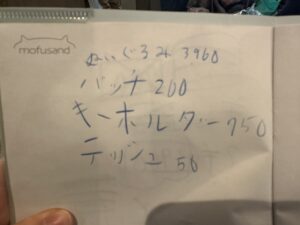 mofusand
ぬいぐるみ 3960
バッチ 200
キーホルダー 750
テッシュ 50